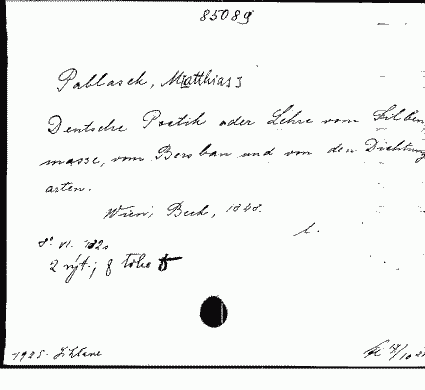 85089
Pablasek, Matthias
Deutsche Poetik oder Lehre vom Silben
masse, vom Versbau und von den Dichtungs
arten.
Wien, Beck, 1848.
8° VI. 182s
2 výt.;
1925.